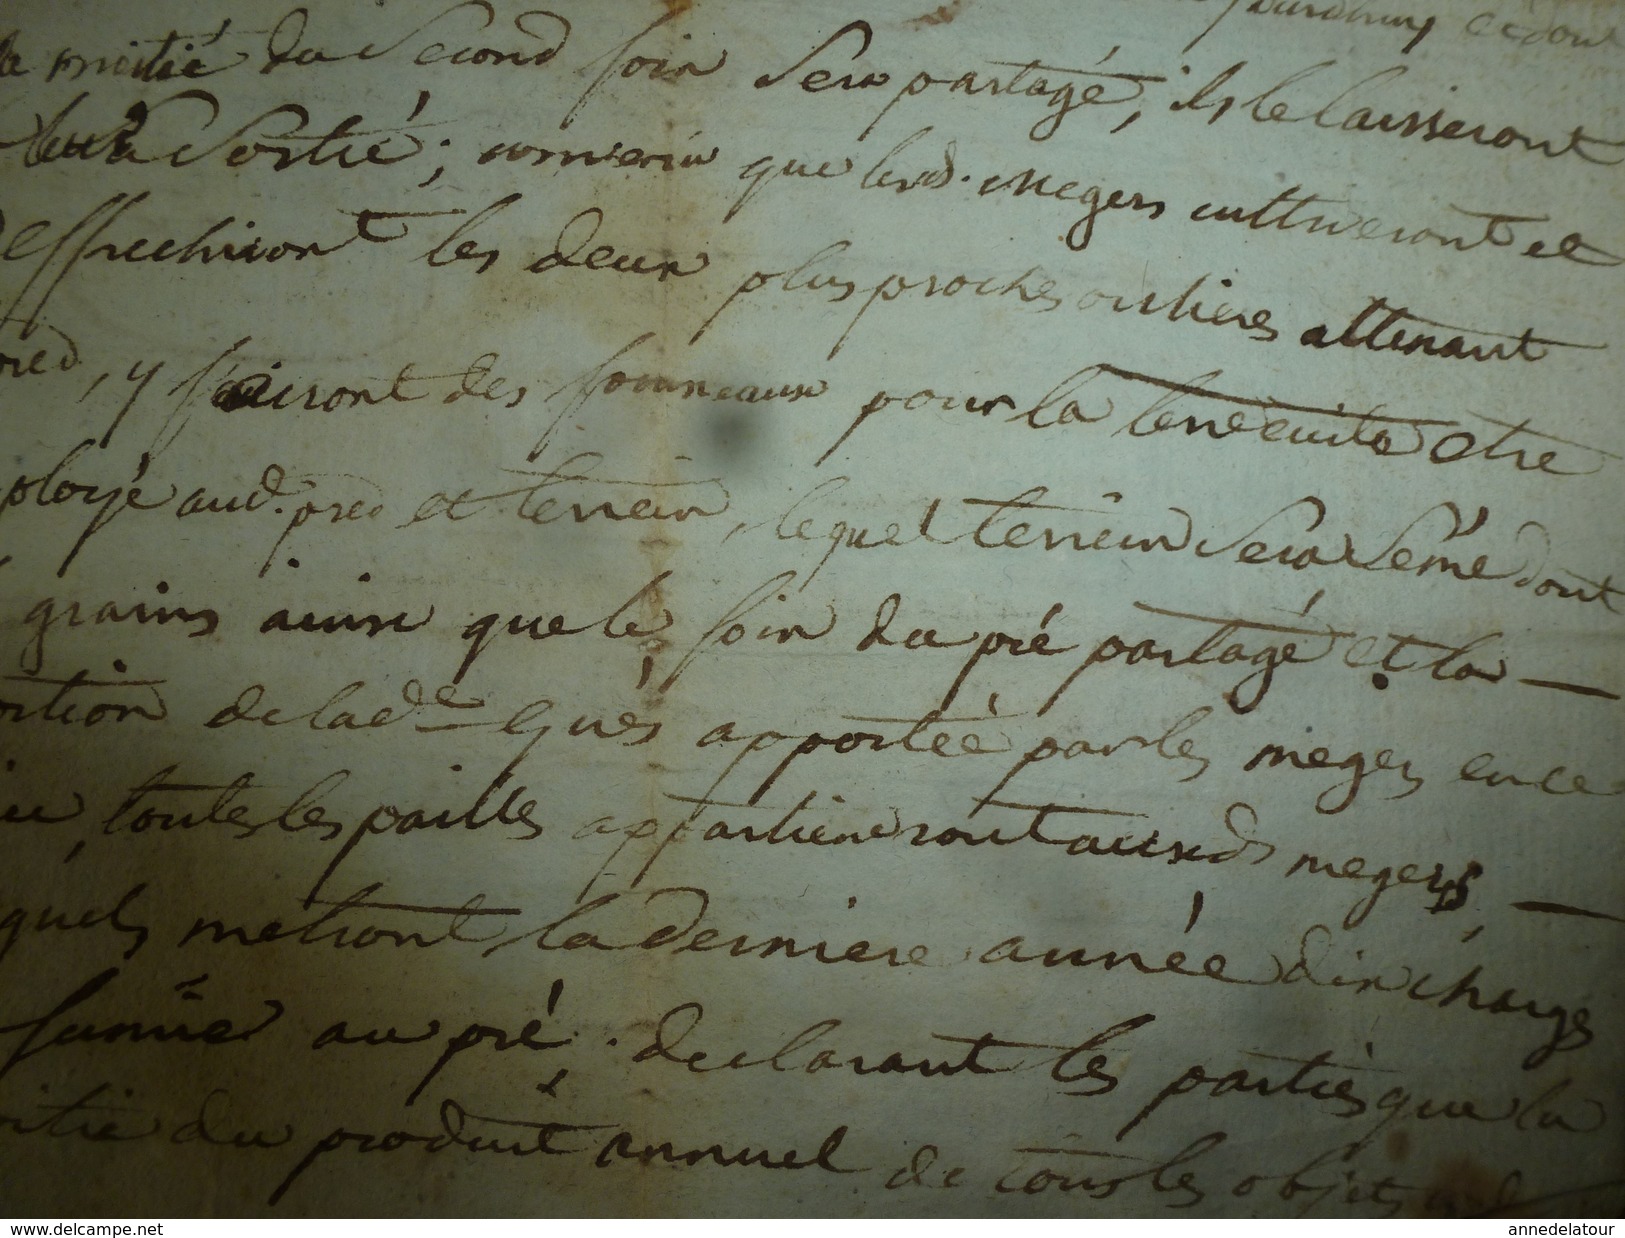 la moitié du second foin sera partagé, ils le laisseront
leur sortié; convenu que lesd. megers cultiveront et
deffrechiront les deux plus proches oulieres attenant
pred, y fairont des fourneaux pour la terre cuite etre
ployé aud. pred et terrein, lequel terrein sera semé dont
grains ainsi que le foin du pré partagé et la
ortion de lad.e apportée par les megers en ce
toutes les pailles appartiendront auxds megers,
quels metront la derniere année d'in charge
fumier au pré. declarant les partiès que la
itié du produit annuel de tous les objets
www.delcampe.net
annedelatour